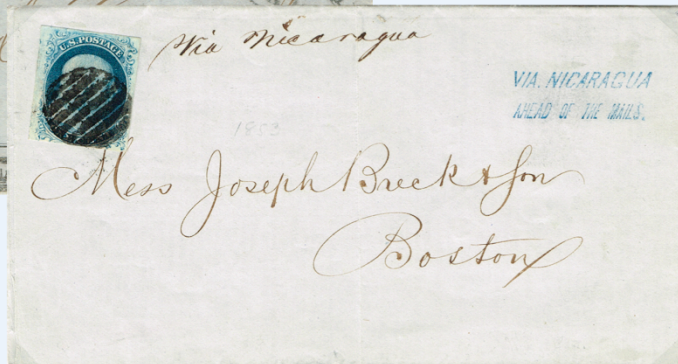 U.S. POSTAGE
Via Nicaragua
VIA. NICARAGUA
AHEAD OF THE MAILS.
1853
Mess Joseph Breck & Son
Boston